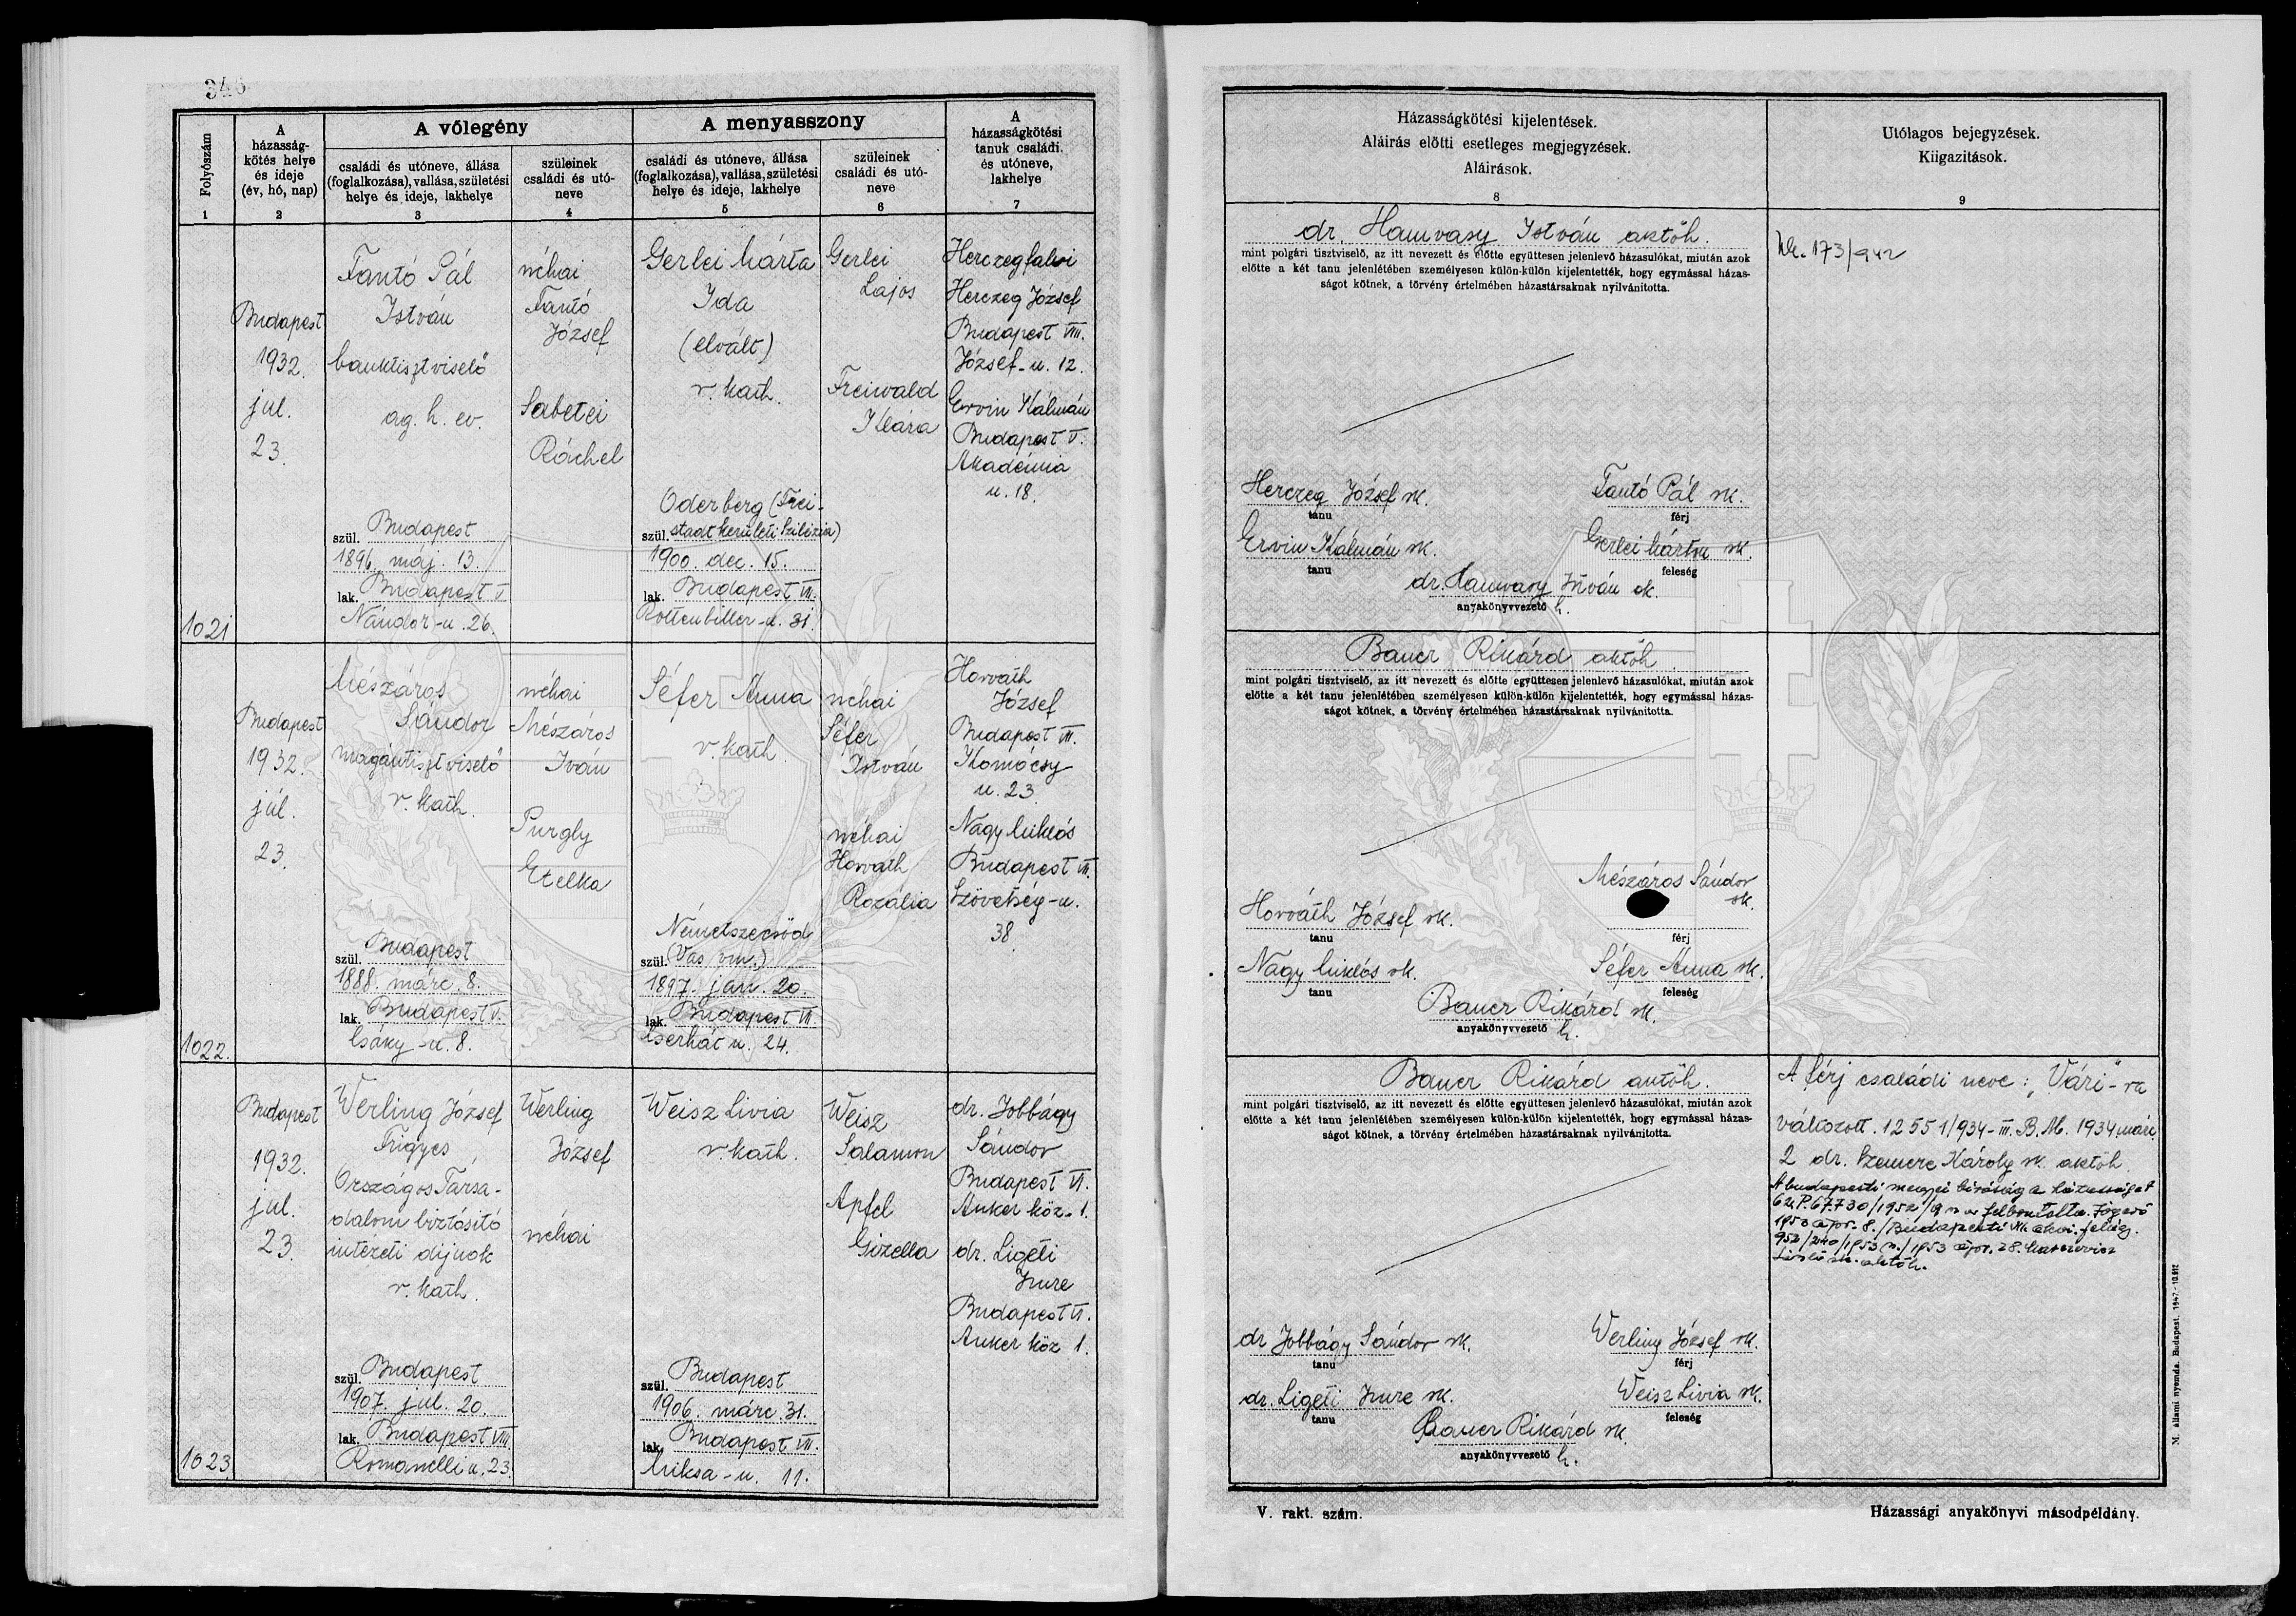 346
Folyószám
1
A
házasság-
kötés helye
és ideje
(év, hó, nap)
2
A vőlegény
családi és utóneve, állása
(foglalkozása), vallása, születési
helye és ideje, lakhelye
3
szüleinek
családi és utó-
neve
4
A menyasszony
családi és utóneve, állása
(foglalkozása), vallása, születési
helye és ideje, lakhelye
5
szüleinek
családi és utó-
neve
6
A
házasságkötési
tanuk családi
és utóneve,
lakhelye
7
1021
Budapest
1932.
jul.
23.
Fantó Pál
István
banktisztviselő
ag. h. ev.
szül. Budapest
1896. máj. 13.
lak. Budapest V.
Nándor-u. 26.
néhai
Fantó
József
Sabetei
Ráchel
Gerlei Márta
Ida
(elvált)
r. kath.
Oderberg (Frei-
szül. stadt kerületi Szilézia)
1900. dec. 15.
lak. Budapest VII.
Rottenbiller-u. 31.
Gerlei
Lajos
Freiwald
Klára
Herczegfalvi
Herczeg József
Budapest VIII.
József-u. 12.
Ervin Kálmán
Budapest V.
Akadémia
u. 18.
1022.
Budapest
1932.
júl.
23.
Mészáros
Sándor
magántisztviselő
r. kath.
szül. Budapest
1888. márc. 8.
lak. Budapest V.
Csáky-u. 8.
néhai
Mészáros
Iván
Purgly
Etelka
Séfer Anna
r. kath.
Németszecsőd
szül. (Vas vm.)
1897. jan. 20.
lak. Budapest VII.
Cserhát u. 24.
néhai
Séfer
István
néhai
Horváth
Rozália
Horváth
József
Budapest VII.
Komócsy
u. 23.
Nagy Miklós
Budapest VII.
Szövetség-u.
38.
1023
Budapest
1932.
jul.
23.
Werling József
Frigyes
Országos Társa-
dalom biztósító
intézeti díjnok
r. kath.
szül. Budapest
1907. jul. 20.
lak. Budapest VIII.
Romanelli u. 23.
Werling
József
néhai
Weisz Livia
r. kath.
szül. Budapest
1906. márc. 31.
lak. Budapest VII.
Miksa-u. 11.
Weisz
Salamon
Apfel
Gizella
dr. Jobbágy
Sándor
Budapest VI.
Anker köz-1.
dr. Ligeti
Imre
Budapest VI.
Anker köz 1.
Házasságkötési kijelentések.
Aláirás előtti esetleges megjegyzések.
Aláirások.
8
Utólagos bejegyzések.
Kiigazitások.
9
dr. Hamvasy István aktőh.
mint polgári tisztviselő, az itt nevezett és előtte együttesen jelenlevő házasulókat, miután azok
előtte a két tanu jelenlétében személyesen külön-külön kijelentették, hogy egymással házas-
ságot kötnek, a törvény értelmében házastársaknak nyilvánitotta.
Herczeg József sk.
tanu
Fantó Pál sk.
férj
Ervin Kálmán sk.
tanu
Gerlei Márta sk.
feleség
dr. Hamvasy István sk.
anyakönyvvezető h.
173/942
Bauer Rikárd aktőh
mint polgári tisztviselő, az itt nevezett és előtte együttesen jelenlevő házasulókat, miután azok
előtte a két tanu jelenlétében személyesen külön-külön kijelentették, hogy egymással házas-
ságot kötnek, a törvény értelmében házastársaknak nyilvánitotta.
Mészáros Sándor
sk.
Horváth József sk.
tanu
férj
Nagy Miklós sk.
tanu
Séfer Anna sk.
feleség
Bauer Rikárd sk.
anyakönyvvezető h.
Bauer Rikárd aktőh.
mint polgári tisztviselő, az itt nevezett és előtte együttesen jelenlevő házasulókat, miután azok
előtte a két tanu jelenlétében személyesen külön-külön kijelentették, hogy egymással házas-
ságot kötnek, a törvény értelmében házastársaknak nyilvánitotta.
dr. Jobbágy Sándor sk.
tanu
Werling József sk.
férj
dr. Ligeti Imre sk.
tanu
Weisz Livia sk.
feleség
Bauer Rikárd sk.
anyakönyvvezető h.
A férj családi neve: „Vári"-ra
változott. 12551/934-III. B. M. 1934 márc
2 dr. Szemere Károly sk. aktőh.
A budapesti megyei bíróság a házasságot
P. 67730/1952/9 felbontotta. Jogerő
1953 ápr. 8. /Budapesti
952/240/1953 /1953 ápr. 28.
László sk. aktőh.
V. rakt. szám.
Házassági anyakönyvi másodpéldány.
M. állami nyomda. Budapest. 1947.-10.912